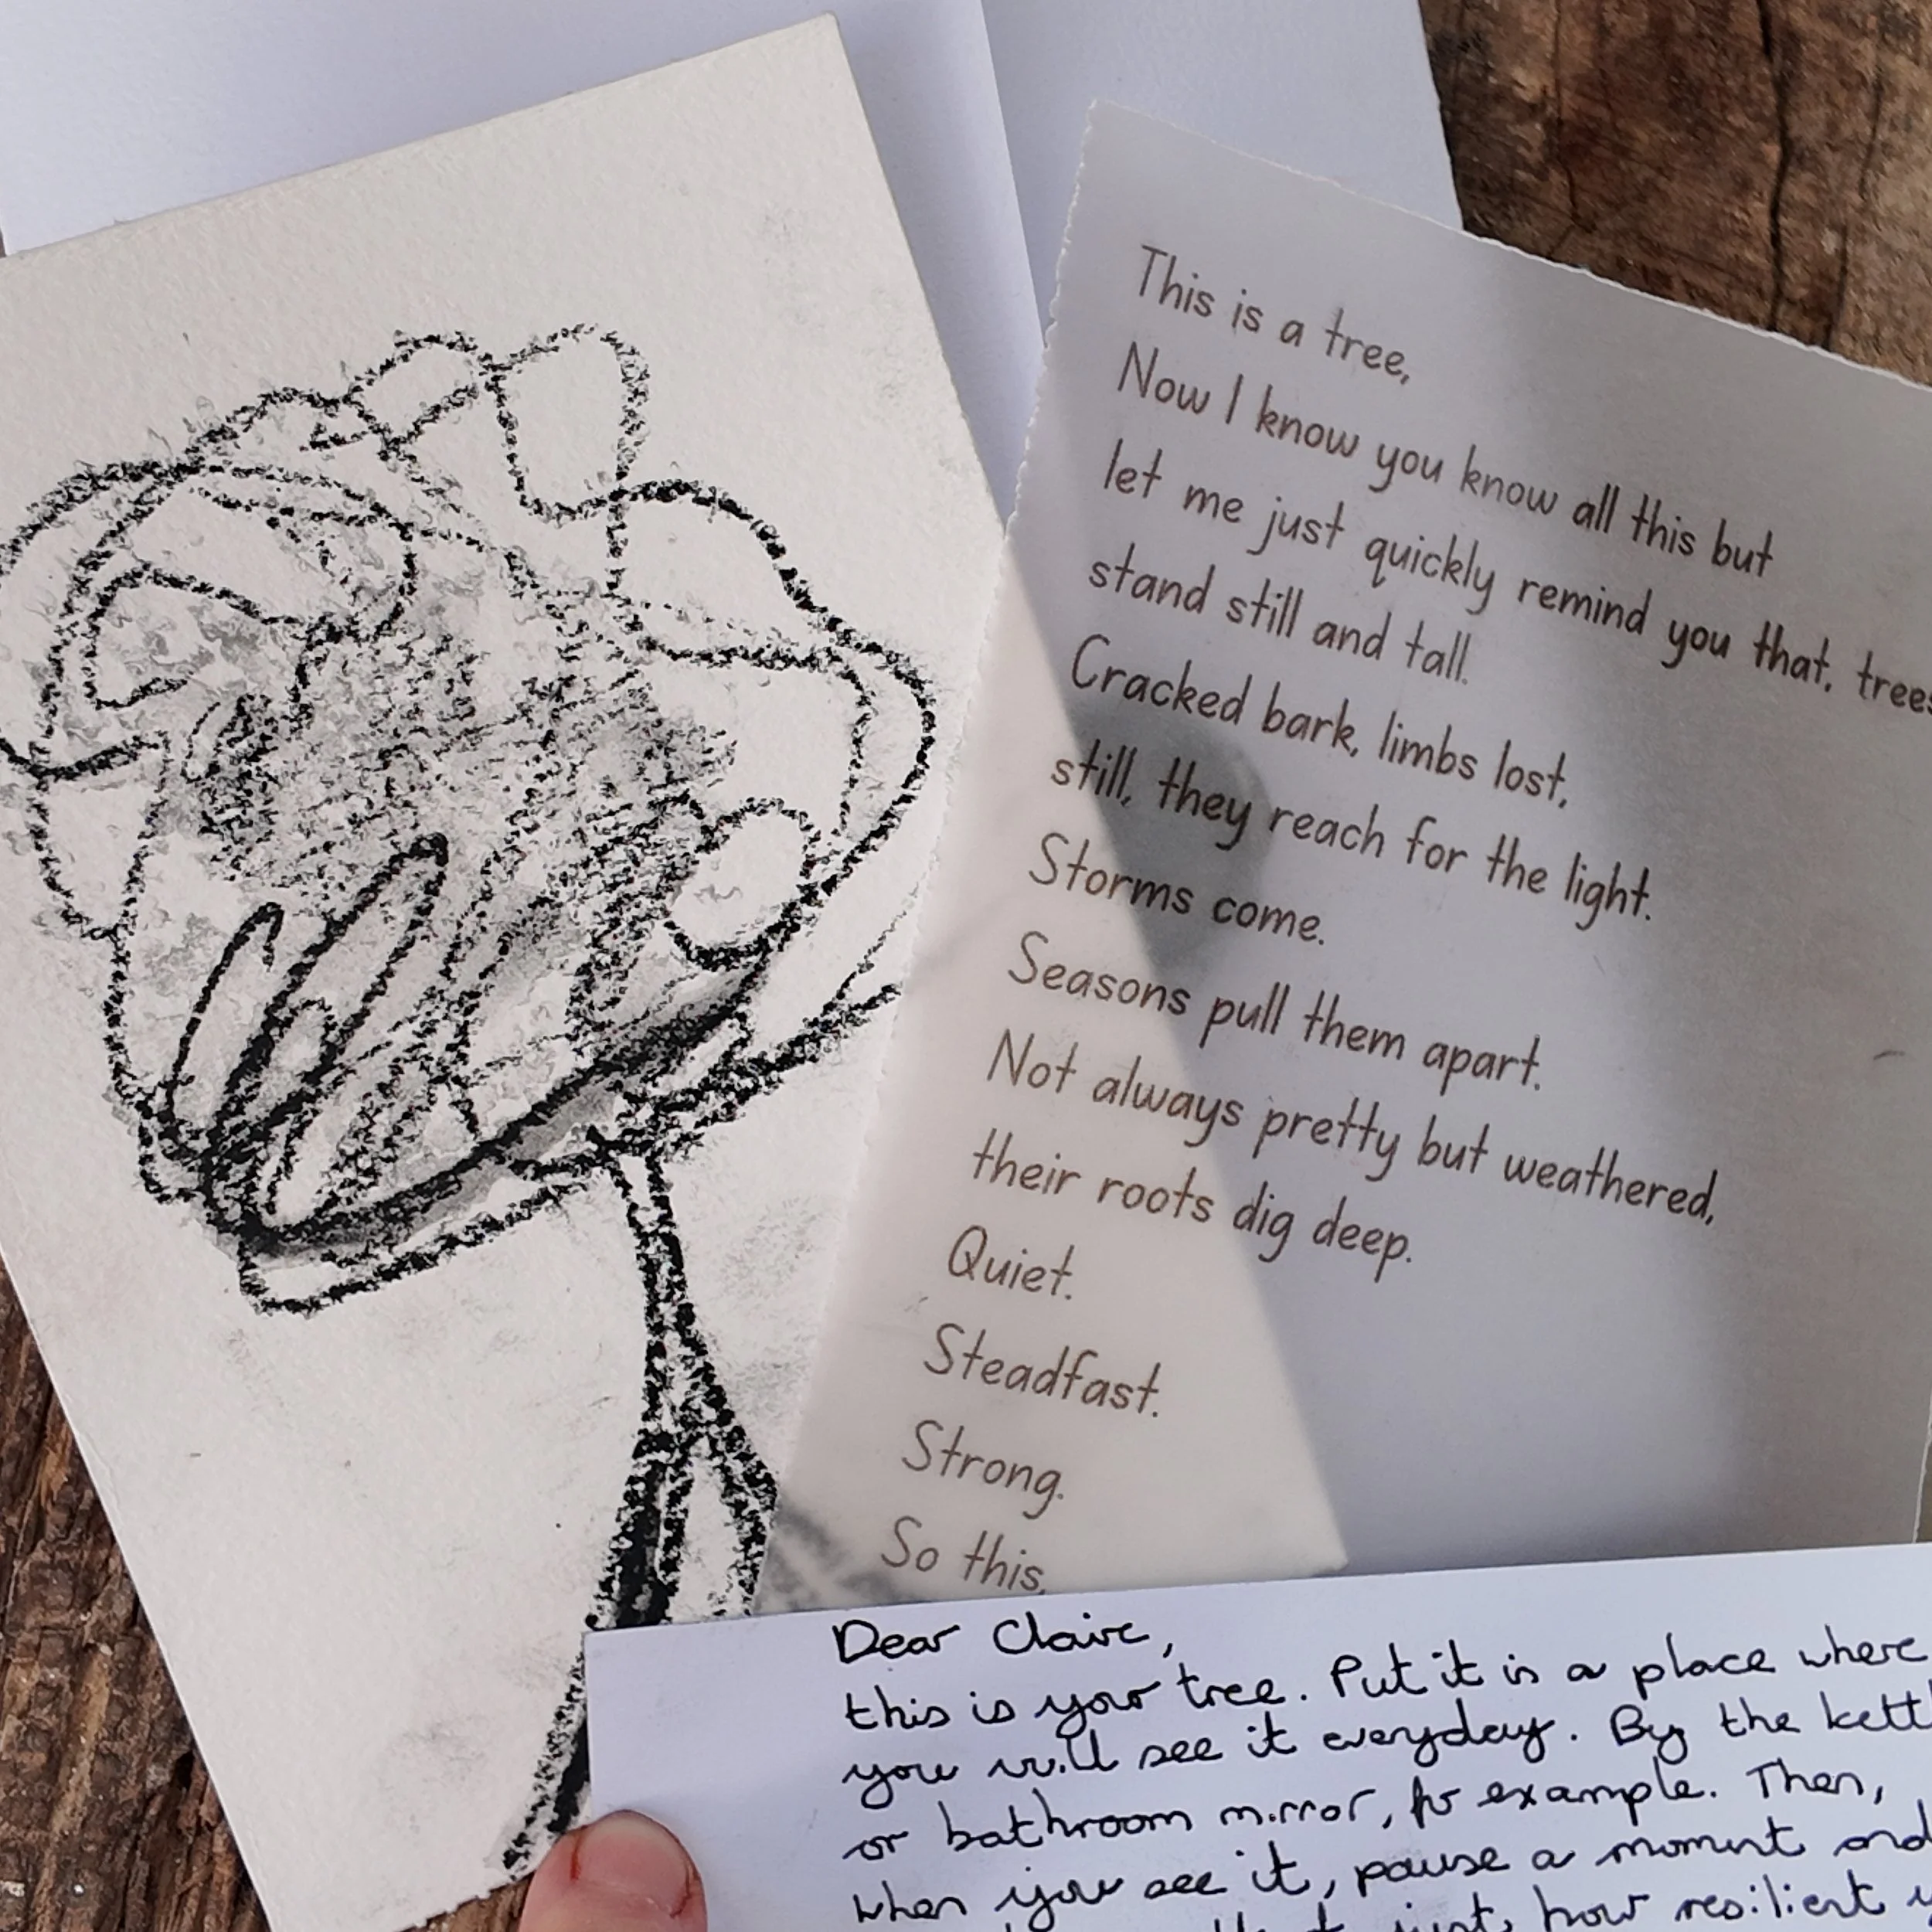 This is a tree,
Now I know you know all this but
let me just quickly remind you that, trees
stand still and tall.
Cracked bark, limbs lost,
still, they reach for the light.
Storms come.
Seasons pull them apart.
Not always pretty but weathered,
their roots dig deep.
Quiet.
Steadfast.
Strong.
So this,
Dear Claire,
this is your tree. Put it in a place where
you will see it everyday. By the kettl
or bathroom mirror, for example. Then,
when you see it, pause a moment and
just how resilient